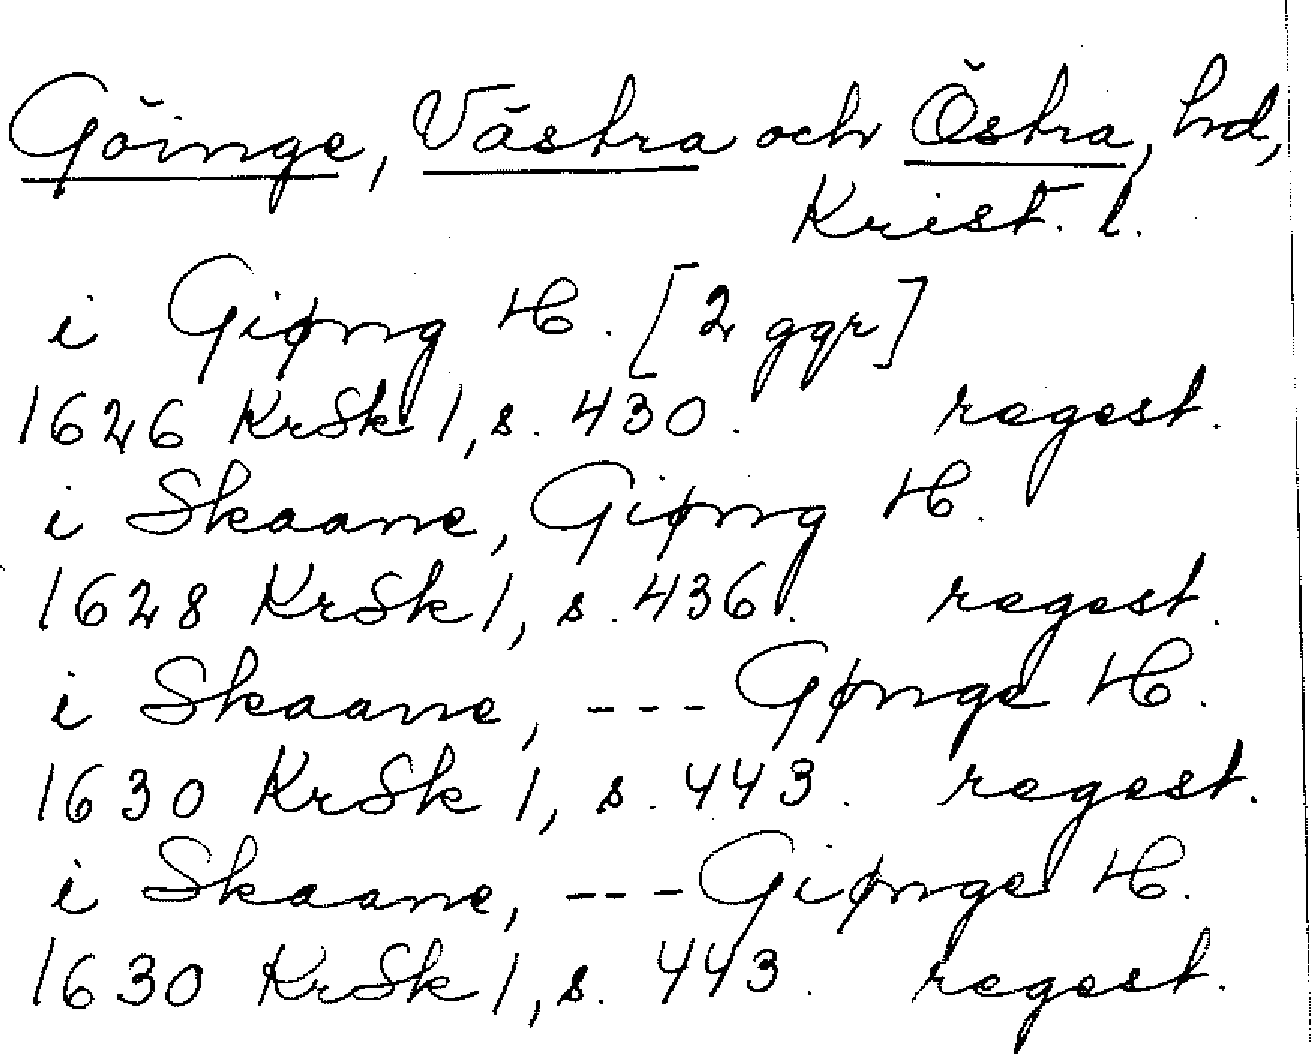 Göinge, Västra och Östra, hd,
Krist. l.
i Giøng H. [2 ggr]
1626 KrSk 1, s. 430. regest.
i Skaane, Giøng H.
1628 KrSk 1, s. 436. regest.
i Skaane, --- Gønge H.
1630 KrSk 1, s. 443. regest.
i Skaane, --- Giønge H.
1630 KrSk 1, s. 443. regest.